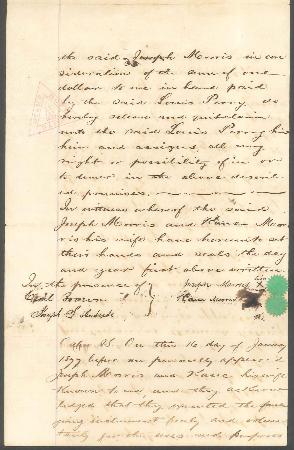 the said Joseph Morris in con
sideration of the sum of one
dollar to me in hand paid
by the said Louis Perry, do
hereby release and quitclaim
unto the said Louis Perry his
heirs and assigns, all my
right or possibility of in or
to dower in the above describ
ed premises.
In witness whereof the said
Joseph Morris and Morr
is his wife have hereunto set
their hands and seals the day
and year first above written.
In the presence of
Joseph Morris
Cecil Brown
Joseph S.
SS. On this 16 day of January
1877 before me personally appeared
Joseph Morris and his wife
known to me and they acknow
ledged that they executed the fore
going instrument freely and volun
tarily for the uses and purposes